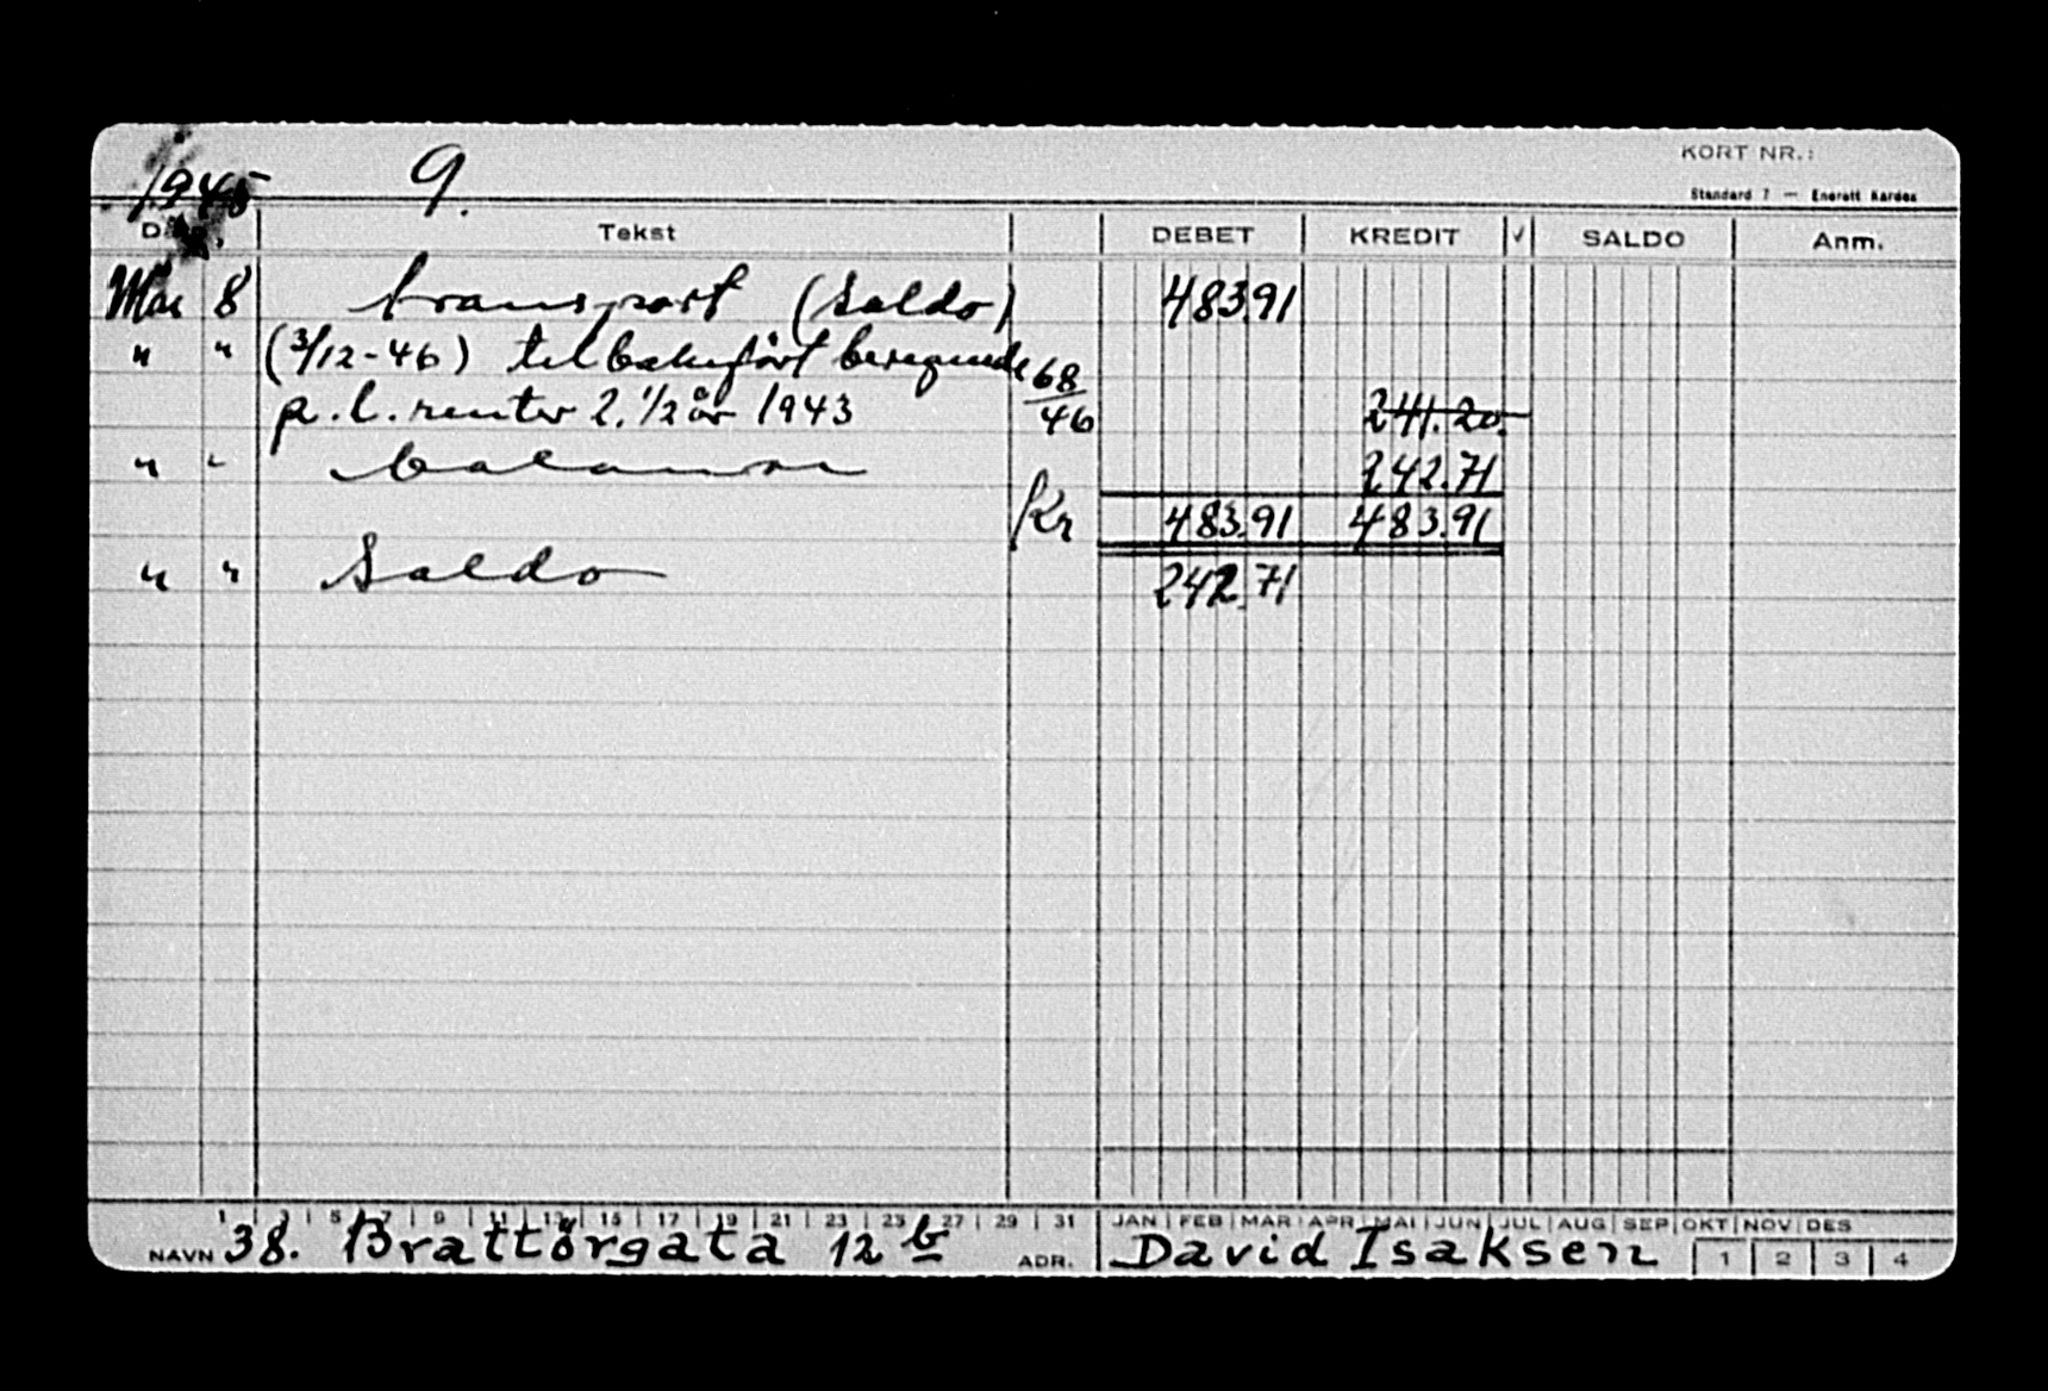 1945 9.
KORT NR.:
Standard 7 — Enerett Kardex
Dag. Tekst DEBET KREDIT √ SALDO Anm.
Mai 8 transport (saldo) 483.91
" " (3/12-46) tilbakeført beregnede 68/46
p.l. renter 2. 1/2 år 1943 241.20.
" " balanse 242.71
Kr 483.91 483.91
" " Saldo 242.71
1 3 5 7 9 11 13 15 17 19 21 23 25 27 29 31 JAN FEB MAR APR MAI JUN JUL AUG SEP OKT NOV DES
NAVN 38. Brattörgata 12 b ADR. David Isaksen 1 2 3 4